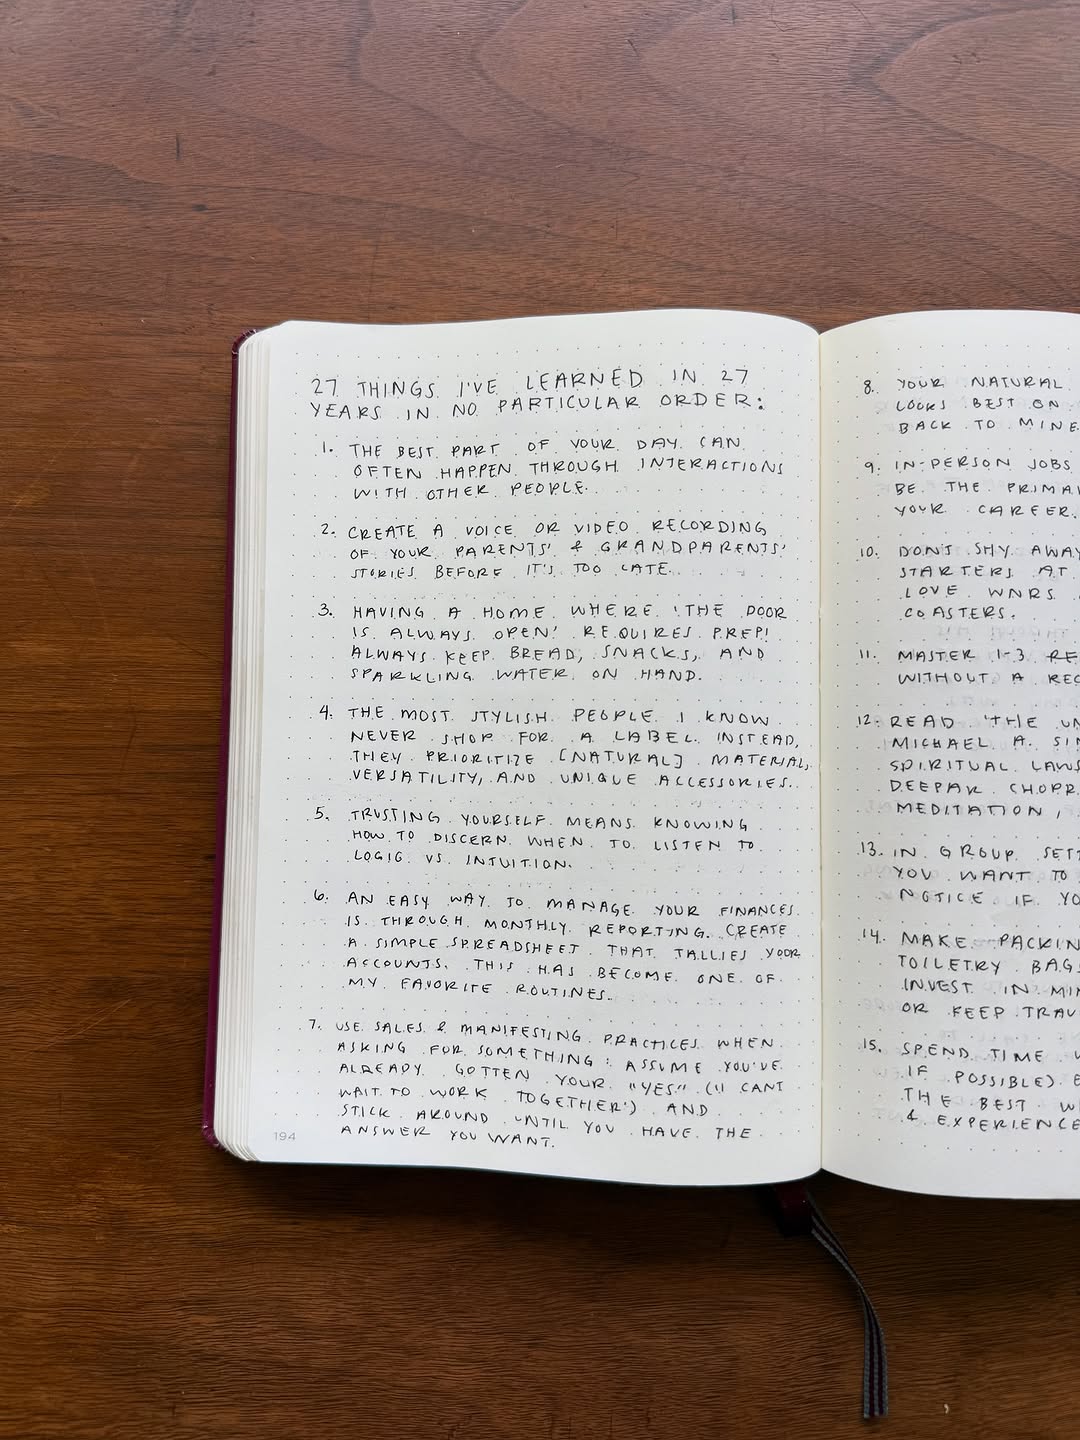 27 THINGS I'VE LEARNED IN 27
YEARS IN NO PARTICULAR ORDER:
1. THE BEST PART OF YOUR DAY CAN
OFTEN HAPPEN THROUGH INTERACTIONS
WITH OTHER PEOPLE.
2. CREATE A VOICE OR VIDEO RECORDING
OF YOUR PARENTS' & GRANDPARENTS'
STORIES BEFORE IT'S TOO LATE.
3. HAVING A HOME WHERE 'THE DOOR
IS ALWAYS OPEN' REQUIRES PREP!
ALWAYS KEEP BREAD, SNACKS, AND
SPARKLING WATER ON HAND.
4. THE MOST STYLISH PEOPLE I KNOW
NEVER SHOP FOR A LABEL. INSTEAD,
THEY PRIORITIZE [NATURAL] MATERIAL,
VERSATILITY, AND UNIQUE ACCESSORIES.
5. TRUSTING YOURSELF MEANS KNOWING
HOW TO DISCERN WHEN TO LISTEN TO
LOGIC VS. INTUITION.
6. AN EASY WAY TO MANAGE YOUR FINANCES
IS THROUGH MONTHLY REPORTING. CREATE
A SIMPLE SPREADSHEET THAT TALLIES YOUR
ACCOUNTS. THIS HAS BECOME ONE OF
MY FAVORITE ROUTINES.
7. USE SALES & MANIFESTING PRACTICES WHEN
ASKING FOR SOMETHING: ASSUME YOU'VE
ALREADY GOTTEN YOUR "YES" ('I CANT
WAIT TO WORK TOGETHER') AND
STICK AROUND UNTIL YOU HAVE THE
ANSWER YOU WANT.
194
8. YOUR NATURAL
LOOKS BEST ON
BACK TO MINE
9. IN-PERSON JOBS
BE THE PRIMA
YOUR CAREER.
10. DON'T SHY AWAY
STARTERS AT
LOVE WNRS
COASTERS.
11. MASTER 1-3 RE
WITHOUT A REC
12. READ 'THE UN
MICHAEL A. SIN
SPIRITUAL LAWS
DEEPAK CHOPR
MEDITATION,
13. IN GROUP SETT
YOU WANT TO
NOTICE IF YO
14. MAKE PACKIN
TOILETRY BAGS
INVEST IN MIN
OR KEEP TRAV
15. SPEND TIME W
IF POSSIBLE) E
THE BEST W
& EXPERIENCE